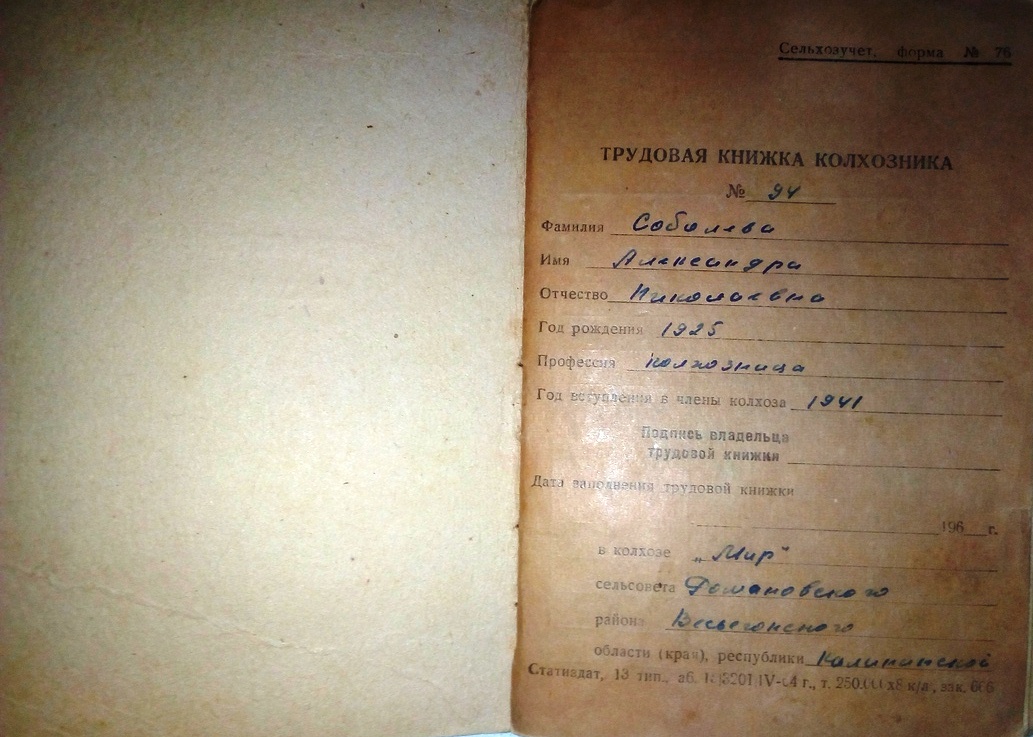 Сельхозучет, форма № 76
ТРУДОВАЯ КНИЖКА КОЛХОЗНИКА
№ 94
Фамилия Соболева
Имя Александра
Отчество Николаевна
Год рождения 1925
Профессия колхозница
Год вступления в члены колхоза 1941
Подпись владельца
трудовой книжки
Дата заполнения трудовой книжки
196 г.
в колхозе „Мир"
сельсовета Романовского
района Весьегонского
области (края), республики Калининской
Статиздат, 13 тип., аб. IV-64 г., т. к/л, зак. 666